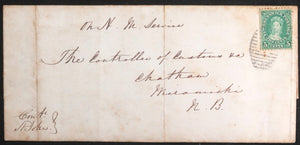 On H. M. Service
The Controller of Customs &c
Chatham
Miramichi
N. B.